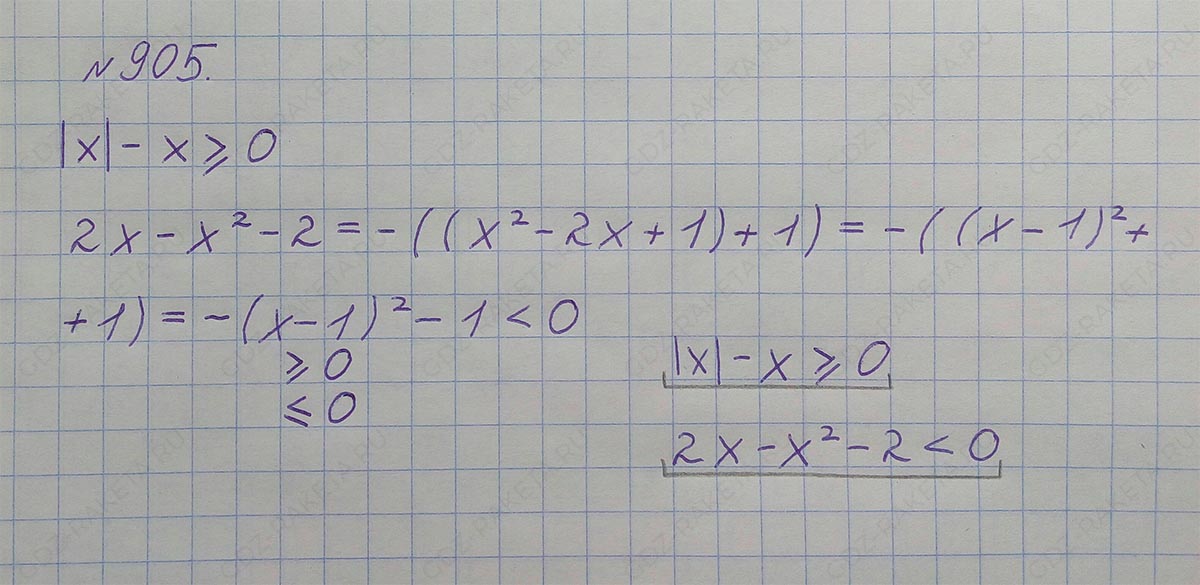 № 905.
|x| - x ⩾ 0
2x - x² - 2 = - ((x² - 2x + 1) + 1) = - ((x - 1)² +
+ 1) = - (x - 1)² - 1 < 0
⩾ 0
⩽ 0
|x| - x ⩾ 0
2x - x² - 2 < 0
GDZ-RAKETA.RU